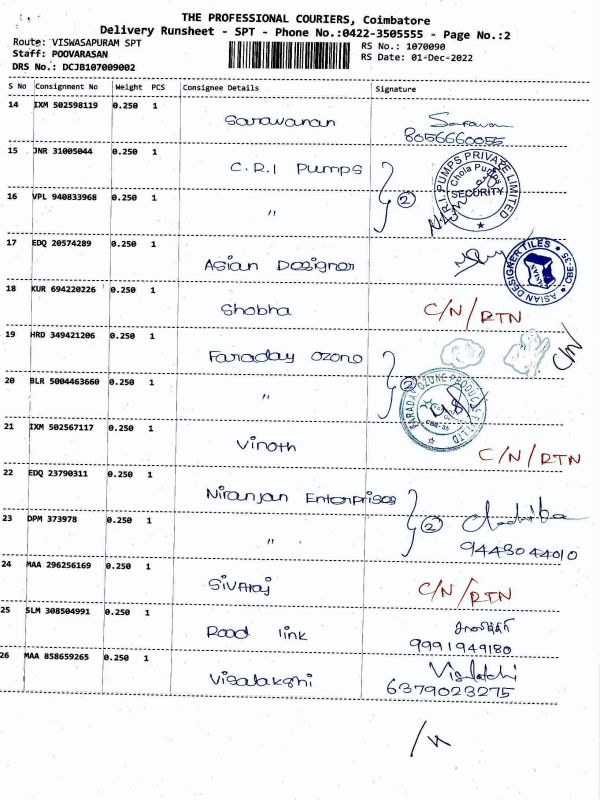 THE PROFESSIONAL COURIERS, Coimbatore
Delivery Runsheet - SPT - Phone No.:0422-3505555 - Page No.:2
Route: VISWASAPURAM SPT
Staff: POOVARASAN
DRS No.: DCJB107009002
RS No.: 1070090
RS Date: 01-Dec-2022
S No Consignment No Weight PCS Consignee Details Signature
14 IXM 502598119 0.250 1 Saravanan
8056660055
15 JNR 31005044 0.250 1 C.R.I Pumps
C.R.I. PUMPS PRIVATE LIMITED
Chola Pumps
SECURITY
16 VPL 940833968 0.250 1 " 2
17 EDQ 20574289 0.250 1 Asian Designer
ASIAN DESIGNER TILES CBE-35
ASIAN
18 KUR 694220226 0.250 1 Shobha C/N/RTN
19 HRD 349421206 0.250 1 Faraday Ozone C/N
20 BLR 5004463660 0.250 1 " 2
FARADAY OZONE PRODUCTS P LTD
21 IXM 502567117 0.250 1 Vinoth C/N/RTN
22 EDQ 23790311 0.250 1 Niranjan Enterprises
23 DPM 373978 0.250 1 " 2
9448044010
24 MAA 296256169 0.250 1 Sivaraj C/N/RTN
25 SLM 308504991 0.250 1 Road link
9991949180
26 MAA 858659265 0.250 1 Visalakshi
6379023275